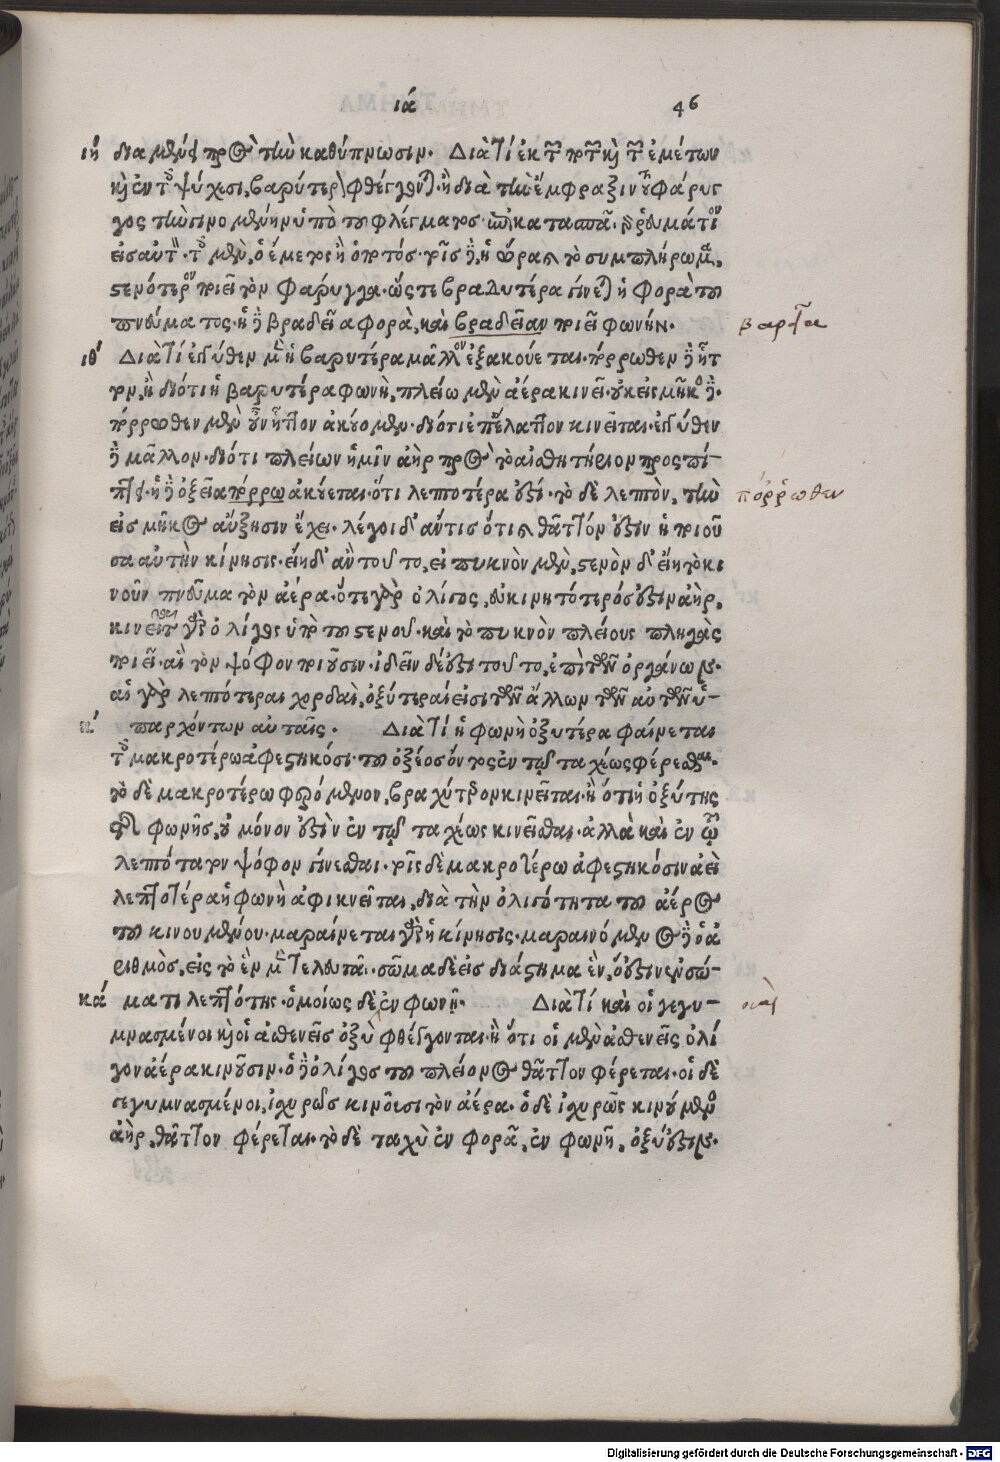 ιά 46
ιή διαμένει πρὸς τὴν καθύπνωσιν. Διατί ἐκ τῶν πότων καὶ τῶν ἐμέτων
καὶ ἐν τοῖς ψύχεσι, βαρύτερον φθέγγονται; ἢ διὰ τὴν ἔμφραξιν τοῦ φάρυγ
γος τὴν γινομένην ὑπὸ τοῦ φλέγματος.
εἰς αὐτὴν. τοῖς μὲν, ὁ ἔμετος ἢ ὁ πότος. τοῖς δὲ, ἡ ὥρα καὶ τὸ συμπλήρωμα,
στενότερον ποιεῖ τὸν φάρυγγα. ὥστε βραδυτέρα γίνεται ἡ φορὰ τοῦ
πνεύματος. ἡ δὲ βραδεῖα φορὰ, καὶ βραδεῖαν ποιεῖ φωνήν.
βαρεῖα
ιθ Διατί ἐγγύθεν μὲν ἡ βαρυτέρα μᾶλλον ἐξακούεται. πόρρωθεν δὲ ἧτ
τον, ἢ διότι ἡ βαρυτέρα φωνὴ, πλείω μὲν ἀέρα κινεῖ. οὐκ εἰς μῆκος δέ.
πόρρωθεν μὲν οὖν ἧττον ἀκούομεν. διότι ἐπ' ἔλαττον κινεῖται. ἐγγύθεν
δὲ μᾶλλον. διότι πλείων ἡμῖν ἀὴρ πρὸς τὸ αἰσθητήριον προςπί
πτει. ἡ δὲ ὀξεῖα πόρρω ἀκούεται. ὅτι λεπτοτέρα ἐστί. τὸ δὲ λεπτὸν, τὴν
πόῤῥωθεν
εἰς μῆκος αὔξησιν ἔχει. λέγοι δ' ἄν τις ὅτι καὶ θᾶττόν ἐστιν ἡ ποιοῦ
σα αὐτὴν κίνησις. εἴη δ' ἂν τοῦτο, εἰ πυκνὸν μὲν, στενὸν δ' εἴη τὸ κι
νοῦν πνεῦμα τὸν ἀέρα. ὅτε γὰρ ὀλίγος, εὐκινητότερός ἐστιν ἀὴρ,
κινεῖται γὰρ ὀλίγος ὑπὸ τοῦ στενοῦ. καὶ τὸ πυκνὸν πλείους πληγὰς
ποιεῖ. αἳ τὸν ψόφον ποιοῦσιν. ἰδεῖν δέ ἐστι τοῦτο, ἐπὶ τῶν ὀργάνων.
αἱ γὰρ λεπτότεραι χορδαὶ, ὀξύτεραί εἰσι τῶν ἄλλων τῶν αὐτῶν ὑ-
κ παρχόντων αὐταῖς. Διατί ἡ φωνὴ ὀξυτέρα φαίνεται
τοῖς μακροτέρω ἀφεστηκόσι. τοῦ ὀξέος ὄντος ἐν τῷ ταχέως φέρεσθαι.
τὸ δὲ μακροτέρω φερόμενον, βραχύτερον κινεῖται. ἢ ὅτι ἡ ὀξύτης
τῆς φωνῆς, οὐ μόνον ἐστὶν ἐν τῷ ταχέως κινεῖσθαι. ἀλλὰ καὶ ἐν τῷ
λεπτότατον ψόφον γίνεσθαι. τοῖς δὲ μακροτέρω ἀφεστηκόσιν ἀεὶ
λεπτοτέρα ἡ φωνὴ ἀφικνεῖται, διὰ τὴν ὀλιγότητα τοῦ ἀέρος
τοῦ κινουμένου. μαραίνεται γὰρ ἡ κίνησις. μαραινόμενος δὲ ὁ ἀ
ριθμὸς, εἰς τὸ ἓν μὲν τελευτᾷ. σῶμα δὲ εἰς διάστημα ἓν, ὅ ἐστιν ἐν σώ-
κά ματι λεπτότης. ὁμοίως δὲ ἐν φωνῇ. Διατί καὶ οἱ γεγυ-
μνασμένοι καὶ οἱ ἀσθενεῖς ὀξὺ φθέγγονται. ἢ ὅτι οἱ μὲν ἀσθενεῖς ὀλί
γον ἀέρα κινοῦσιν. ὁ δὲ ὀλίγος τοῦ πλείονος θᾶττον φέρεται. οἱ δὲ
γεγυμνασμένοι, ἰσχυρῶς κινοῦσι τὸν ἀέρα. ὁ δὲ ἰσχυρῶς κινούμενος
ἀὴρ, θᾶττον φέρεται. τὸ δὲ ταχὺ ἐν φορᾷ, ἐν φωνῇ, ὀξύ ἐστιν.
Digitalisierung gefördert durch die Deutsche Forschungsgemeinschaft - DFG